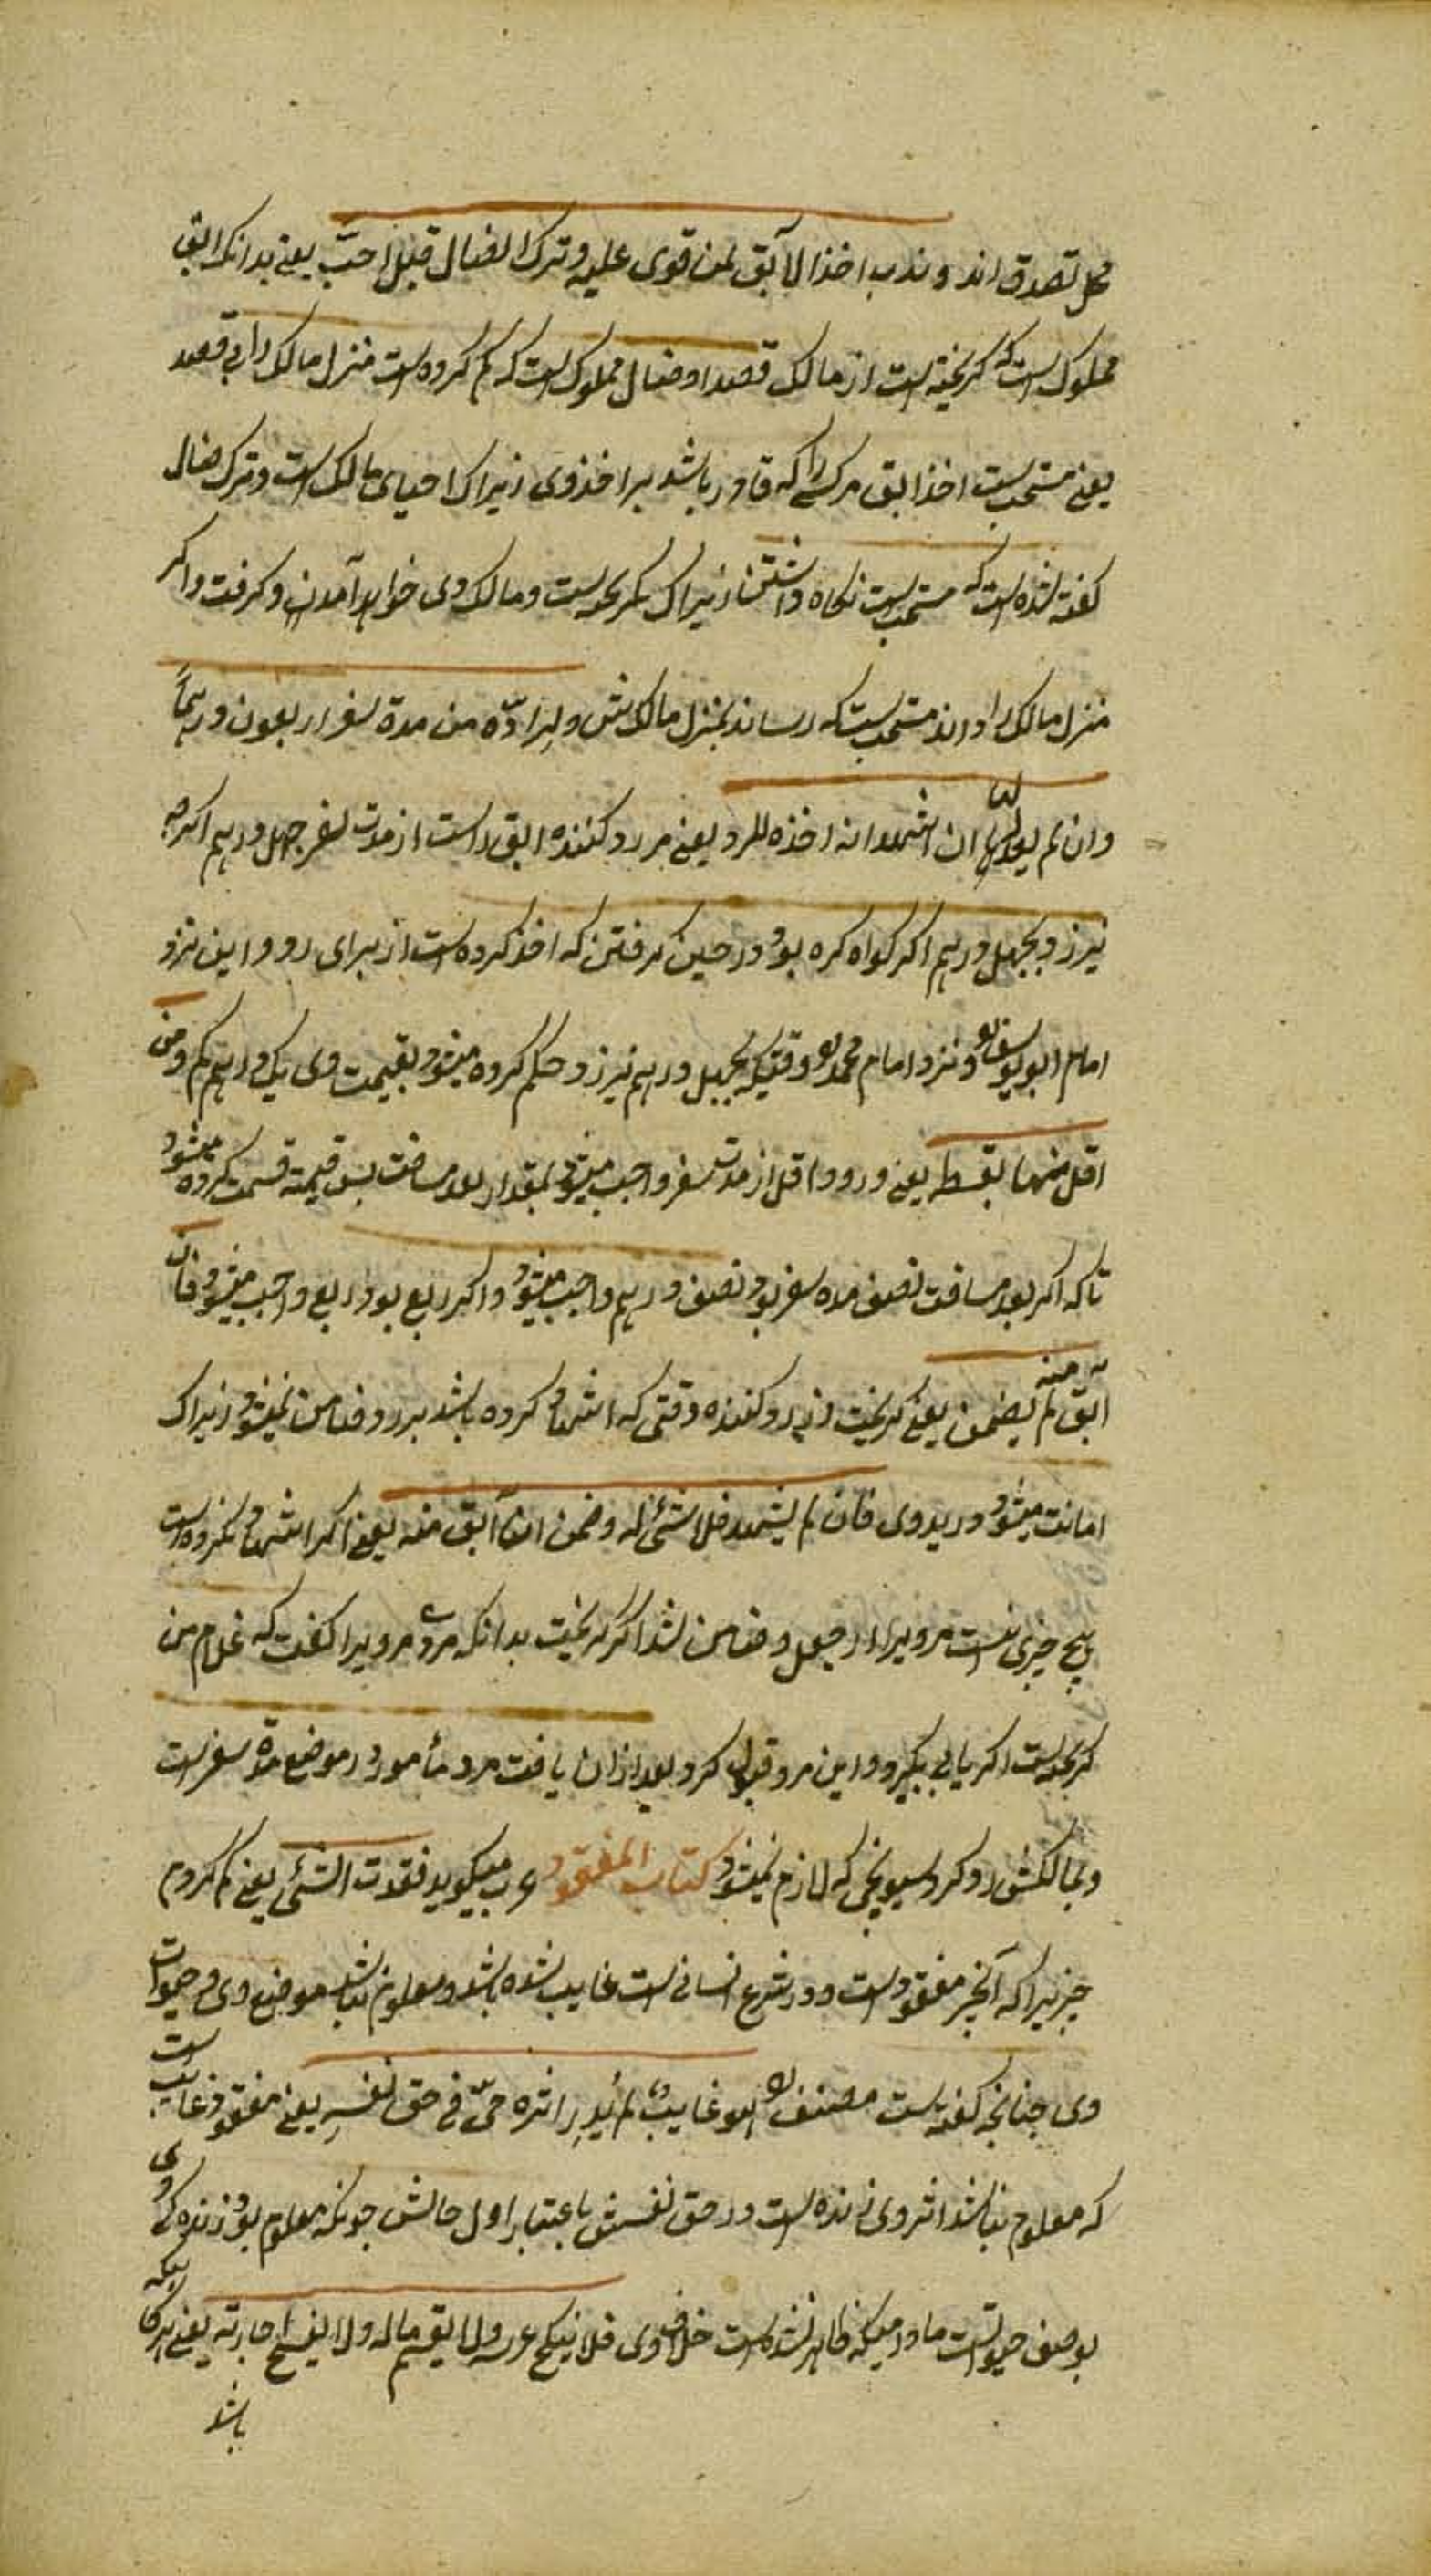 محل تصدق اند و ندب اخذ الآبق لمن قوی علیه و ترک الضال قیل احبّ یعنی بدانکه ابق
مملوک است که گریخته است از مالک قصدا و ضال مملوک است که گم کرده است منزل مالک را بی قصد
یعنی مستحب است اخذ ابق مر کسی را که قادر باشد بر اخذ وی زیراک احیای مالک است و ترک ضال
گفته شده است که مستحب است نگاه داشتن زیراک نگریخته است و مالک وی خواهد آمدن و گرفت و اگر
منزل مالک را داند مستحب است که رساند بمنزل مالکش و لرادّه من مدة سفر اربعون درهماً
و ان لم یعدلها ان اشهد انه اخذه للرد یعنی مر رد کننده ابق راست از مدت سفر چهل درهم اگرچه
نیرزد بچهل درهم اگر گواه کرده بود در حین گرفتن که اخذ کرده است از برای رد و این نزد
امام ابو یوسف و نزد امام محمد وقتیکه بچهل درهم نیرزد حکم کرده میشود بقیمت وی یک درهم کم و من
اقل منها بقسطه یعنی در رد اقل از مدت سفر واجب میشود بمقدار بعد مسافت پس قیمة قسمت کرده میشود
تا که اگر بعد مسافت نصف مده سفر بود نصف درهم واجب میشود و اگر ربع بود ربع واجب میشود فان
ابق منه لم یضمن یعنی گریخت از رد کننده وقتی که اشهاد کرده باشد بر رد ضامن نمیشود زیراک
امانت میشود در ید وی فان لم یشهد فلا شئ له و ضمن ان آبق منه یعنی اگر اشهاد نکرده است
هیچ چیزی نیست مر ویرا از جعل و ضامن شد اگر گریخت بدانکه مردی مر ویرا گفت که غلام من
گریخته است اگر یابی بگیر و این مرد قبول کرد بعد از آن یافت مرد مأمور در موضع مدة سفر است
و بمالکش رد کرد هیچ چیز که لازم نمیشود کتاب المفقود عرب میگوید فقدت الشئ یعنی گم کردم
چیزیرا که آنچیز مفقود است و در شرع انسانی است غایب شده باشد و معلوم نباشد موضع وی و حیوات
وی چنانچه گفته است مصنف هو غایب لم یُدرَ اثره حیّ فی حق نفسِه یعنی مفقود غایب است
که معلوم نباشد اثر وی زنده است در حق نفسش باعتبار اول حالش چونکه معلوم بود زندگی وی
بوصف حیوة است مادامیکه ظاهر نشده است خلاف وی فلا ینکح عرسه و لا یقسم ماله و لا یفسخ اجارته یعنی هرگاه
باشد